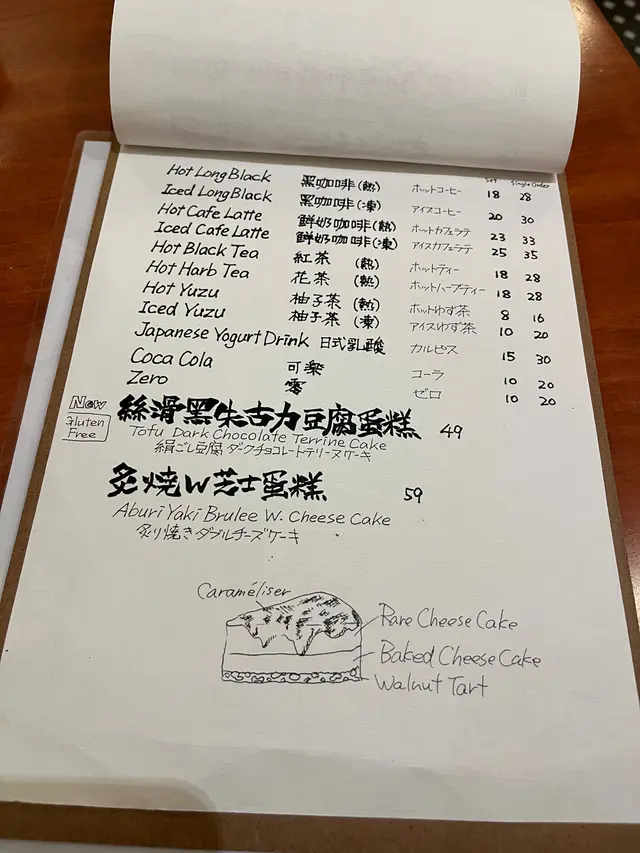 Set Single Order
Hot Long Black 黑咖啡(熱) ホットコーヒー 18 28
Iced Long Black 黑咖啡(凍) アイスコーヒー 20 30
Hot Cafe Latte 鮮奶咖啡(熱) ホットカフェラテ 23 33
Iced Cafe Latte 鮮奶咖啡(凍) アイスカフェラテ 25 35
Hot Black Tea 紅茶 (熱) ホットティー 18 28
Hot Harb Tea 花茶 (熱) ホットハーブティー 18 28
Hot Yuzu 柚子茶 (熱) ホットゆず茶 8 16
Iced Yuzu 柚子茶 (凍) アイスゆず茶 10 20
Japanese Yogurt Drink 日式乳酸 カルピス 15 30
Coca Cola 可樂 コーラ 10 20
Zero 零 ゼロ 10 20
New
Gluten
Free
絲滑黑朱古力豆腐蛋糕 49
Tofu Dark Chocolate Terrine Cake
絹ごし豆腐 ダークチョコレートテリーヌケーキ
炙燒W芝士蛋糕 59
Aburi Yaki Brulee W. Cheese Cake
炙り焼きダブルチーズケーキ
Caraméliser
Rare Cheese Cake
Baked Cheese Cake
Walnut Tart